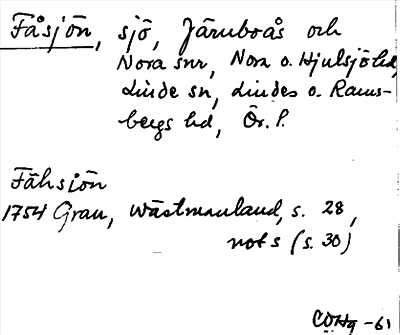 Fåsjön, sjö, Järnboås och
Nora snr, Nora o. Hjulsjö hd,
Linde sn, Lindes o. Rams-
bergs hd, Ör. l.
Fåhsiön
1754 Grau, Wästmanland, s. 28,
not s (s. 30)
-61